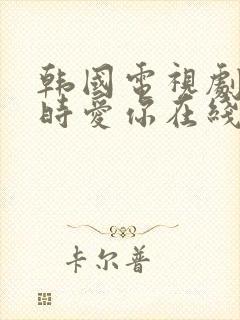 韩國電視劇
時愛你在綫
卡尔普